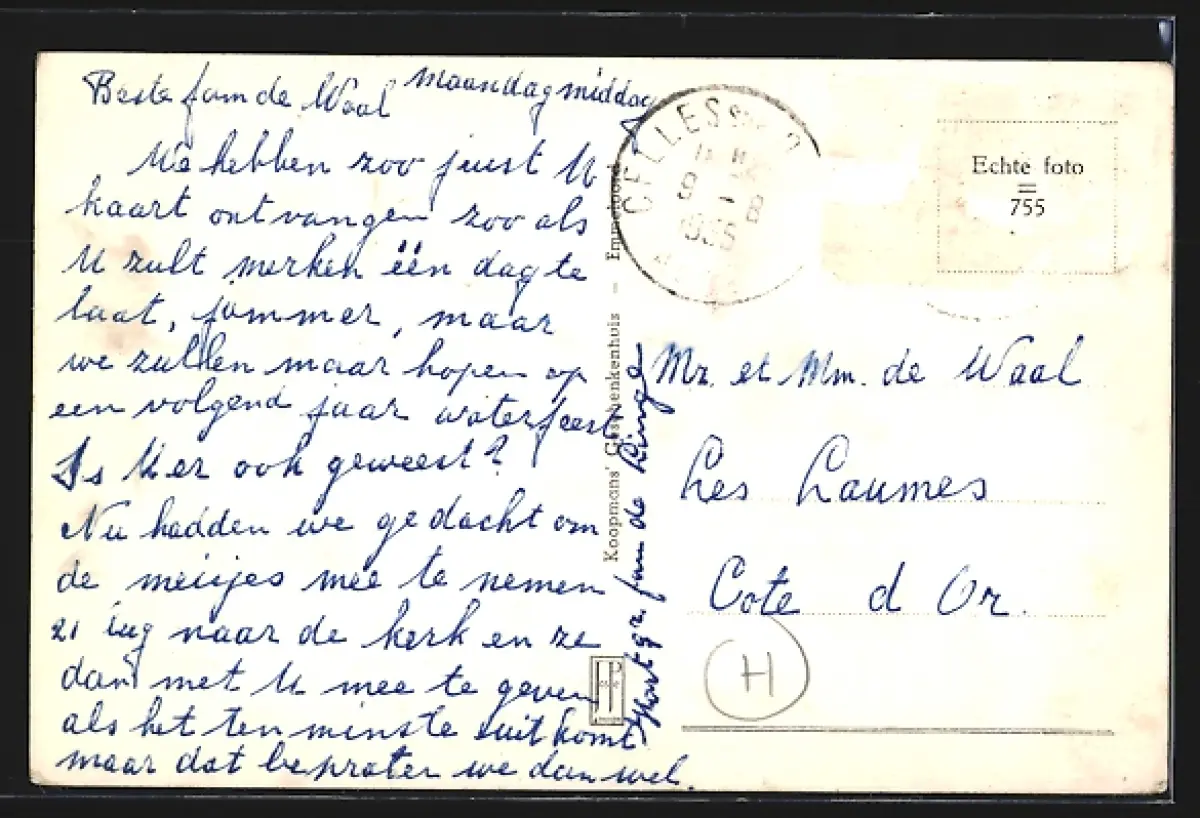 Maandagmiddag
Beste fam de Waal
We hebben zoo juist U
kaart ontvangen zoo als
U zult merken één dag te
laat, jommer, maar
we zullen maar hopen op
een volgend jaar waterfeest
Is U er ook geweest?
Nu hadden we gedacht om
de meisjes mee te nemen
21 aug naar de kerk en ze
dan met U mee te geven
als het ten minste uit komt
maar dat bepraten we dan wel.
Hart gr. fam de
Koopmans' Geschenkenhuis – Emmeloord
CELLES
9 - 8
1955
Echte foto
755
Mr. et Mm. de Waal
Les Laumes
Cote d Or.
H
JP